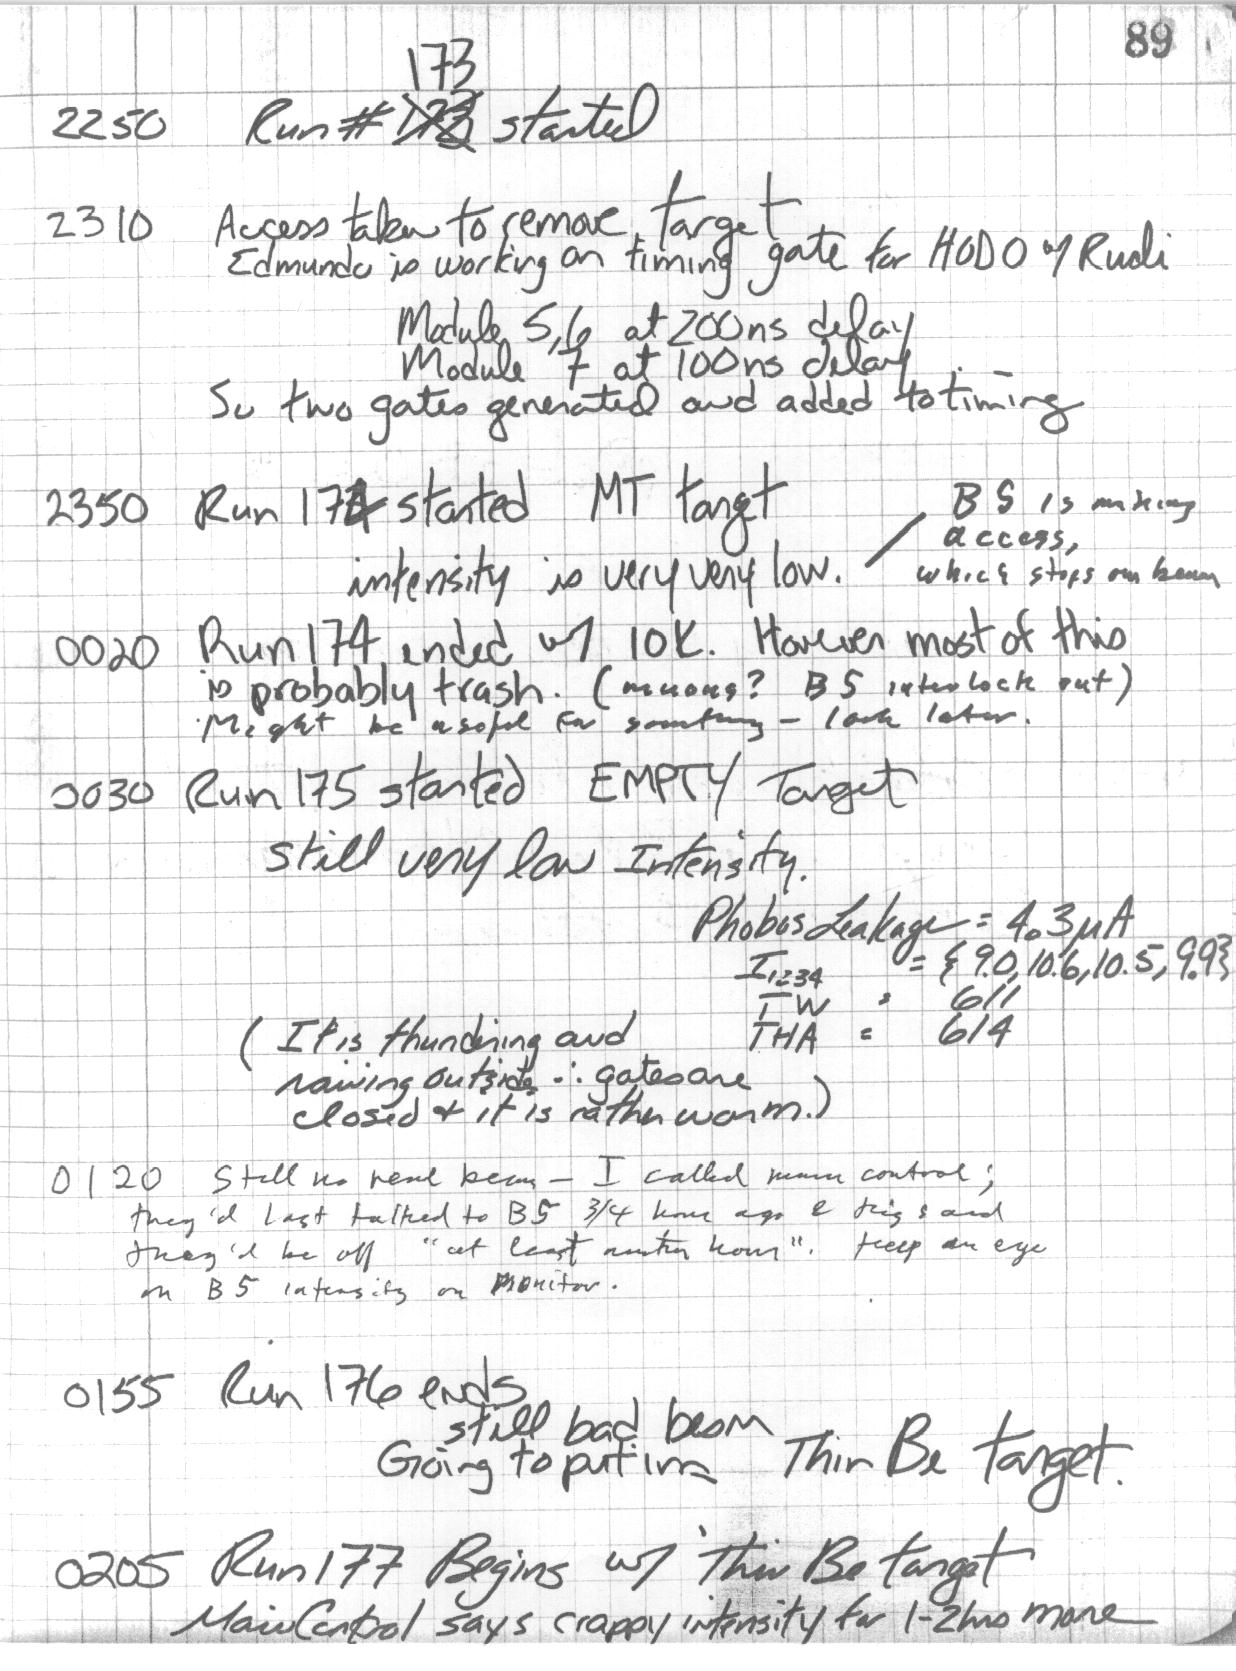 89
173
2250 Run # started
2310 Access taken to remove target
Edmundo is working on timing gate for HODO w/ Rudi
Module 5,6 at 200ns delay
Module 7 at 100ns delay
So two gates generated and added to timing
2350 Run 174 started MT target
intensity is very very low.
B5 is making
access,
which stops our beam
0020 Run 174 ended w/ 10K. However most of this
is probably trash. (muons? B5 interlock out)
Might be useful for something - look later.
0030 Run 175 started EMPTY Target
still very low Intensity.
Phobos Leakage = 4.3μA
I1234 = {9.0, 10.6, 10.5, 9.9}
TW = 611
THA = 614
(It is thundering and
raining outside ∴ gates are
closed & it is rather warm.)
0120 Still no real beam - I called main control;
they'd last talked to B5 3/4 hour ago & they said
they'd be off "at least another hour". Keep an eye
on B5 intensity on monitor.
0155 Run 176 ends
still bad beam
Going to put in Thin Be target.
0205 Run 177 Begins w/ Thin Be target
Main Control says crappy intensity for 1-2 hrs more